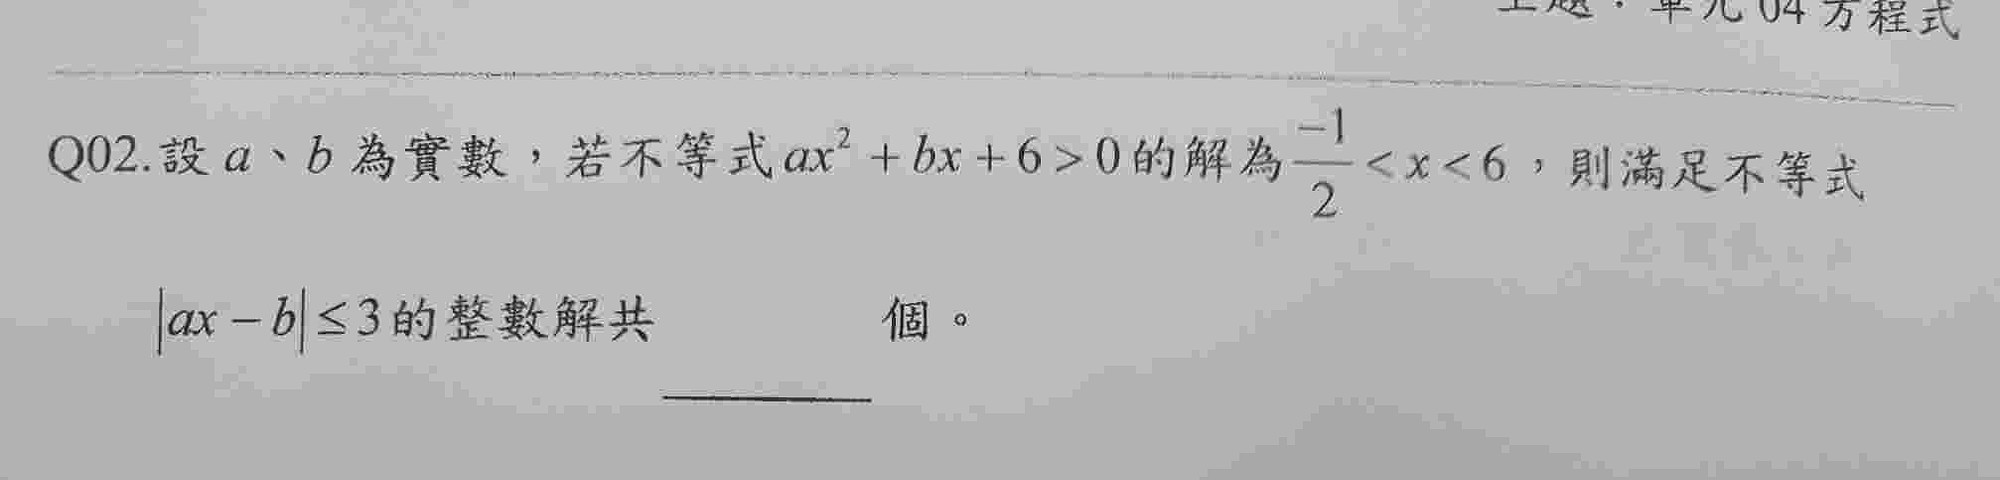 主題：單元 04 方程式
Q02.設 a、b 為實數，若不等式 ax² + bx + 6 > 0 的解為 \frac{-1}{2} < x < 6，則滿足不等式
|ax − b| ≤ 3 的整數解共＿＿＿＿個。